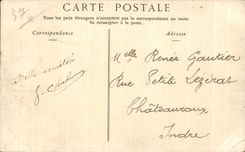 37
CARTE POSTALE
Tous les pays étrangers n'acceptent pas la correspondance au recto.
Se renseigner à la poste
Correspondance
Adresse
Melle Renée Gautier
Rue Petit Lézerat
Châteauroux
Indre